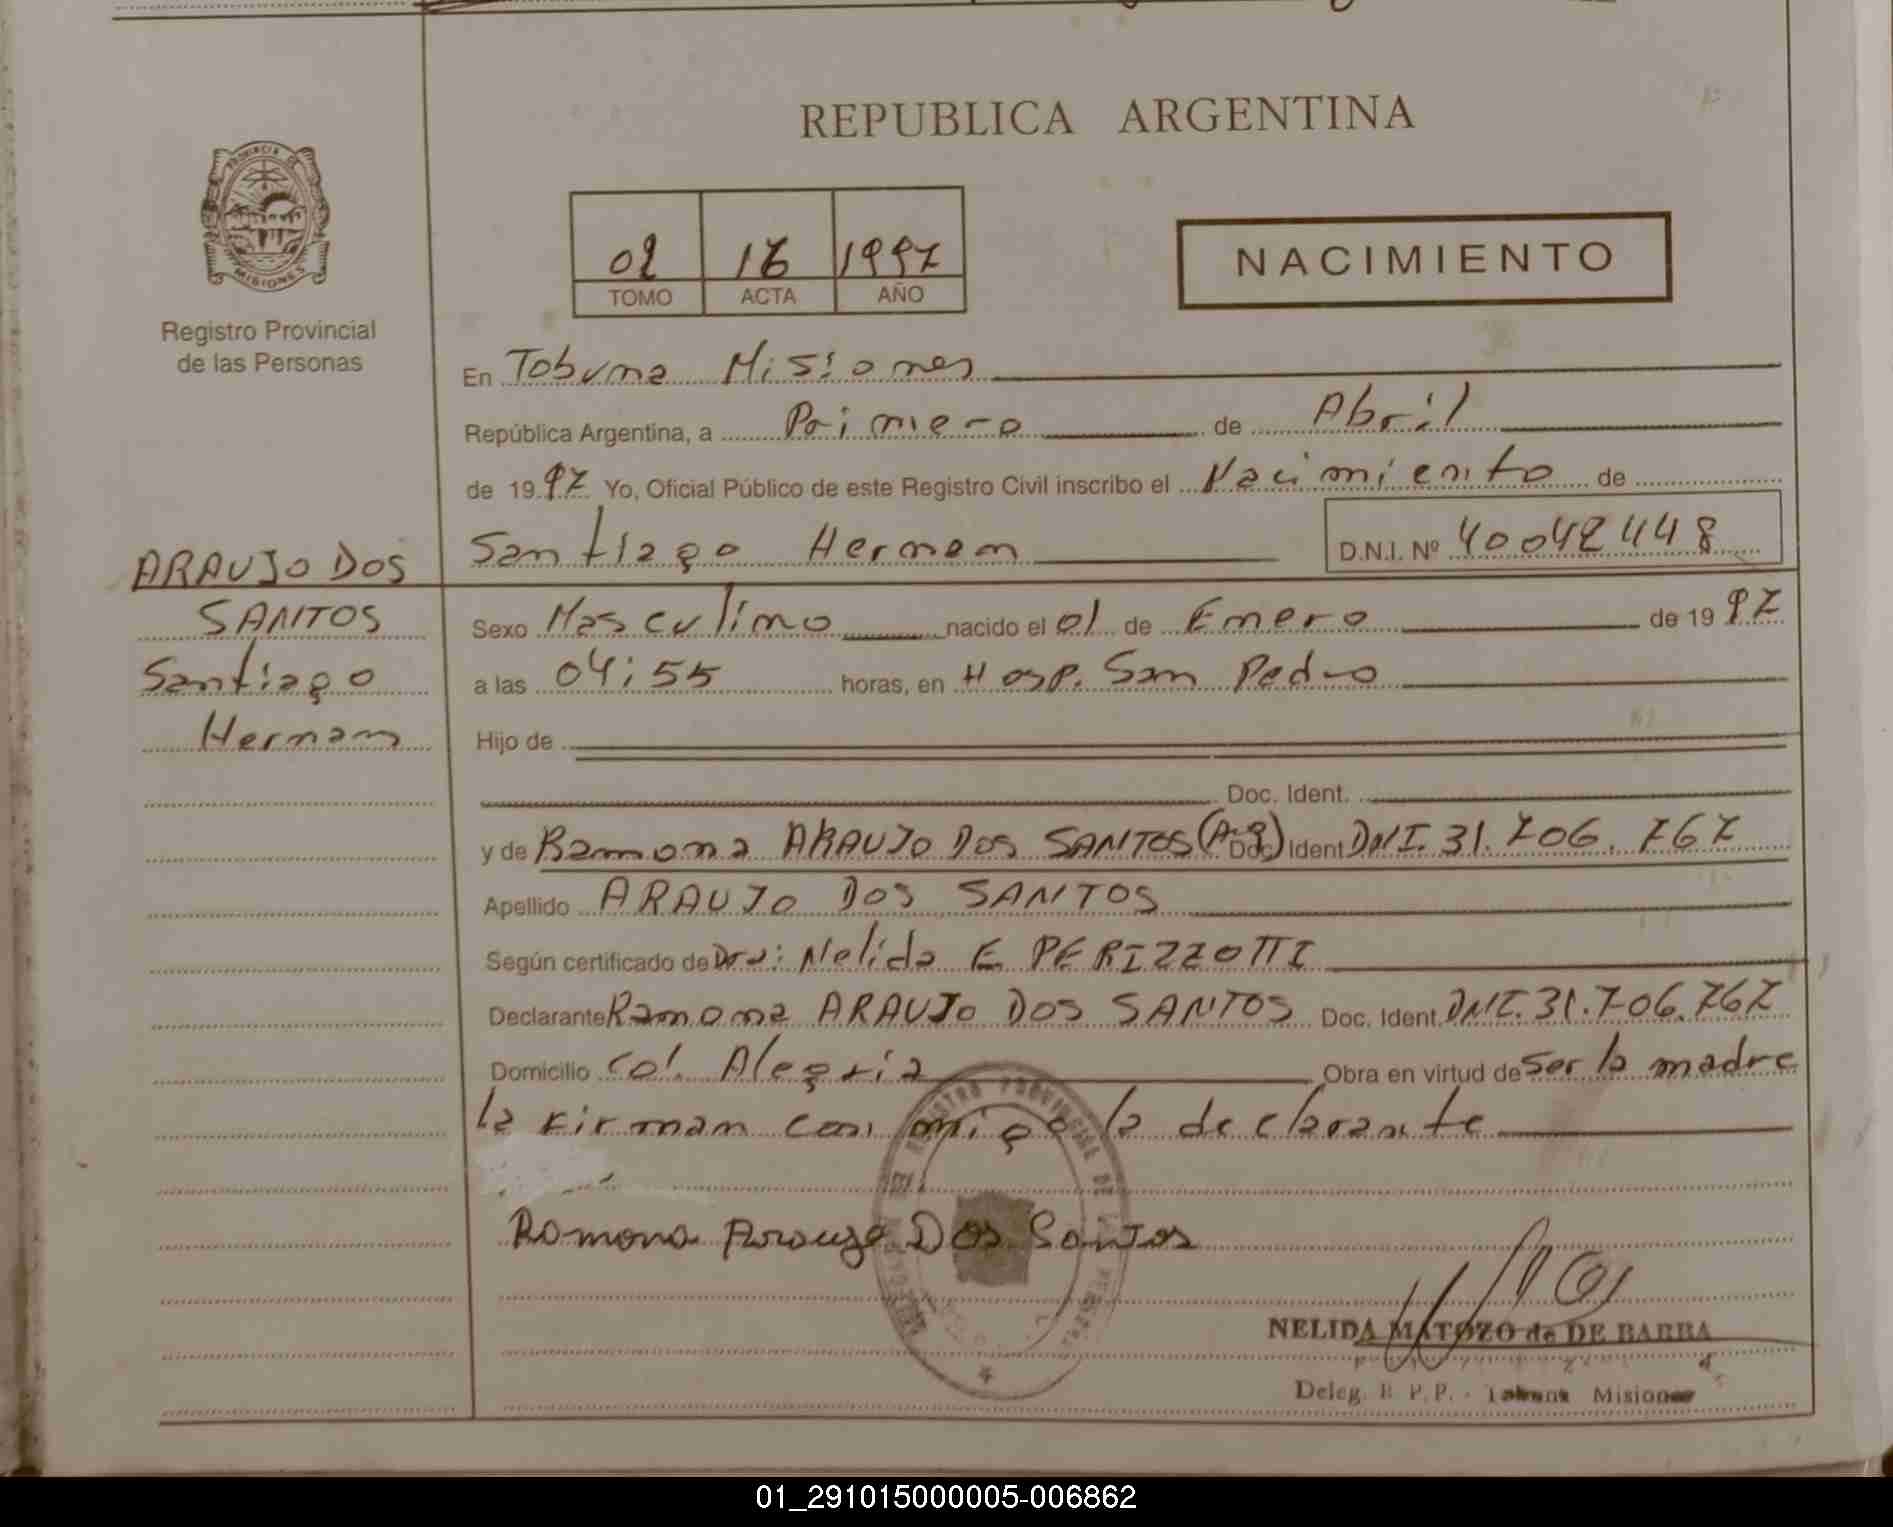 REPUBLICA ARGENTINA
PROVINCIA DE
MISIONES
Registro Provincial
de las Personas
02 16 1997
TOMO ACTA AÑO
NACIMIENTO
En Tobuna Misiones
República Argentina, a Primero de Abril
de 1997 Yo, Oficial Público de este Registro Civil inscribo el Nacimiento de
Santiago Hernan D.N.I. Nº 40042448
ARAUJO DOS
SANTOS
Santiago
Hernan
Sexo Masculino nacido el 01 de Enero de 1997
a las 04:55 horas, en Hosp. San Pedro
Hijo de
Doc. Ident.
y de Ramona ARAUJO DOS SANTOS (Arg) Doc. Ident DNI. 31.706.767
Apellido ARAUJO DOS SANTOS
Según certificado de Dra: Nelida E. PERIZZOTTI
Declarante Ramona ARAUJO DOS SANTOS Doc. Ident. DNI. 31.706.767
Domicilio Col. Alegria Obra en virtud de Ser la madre
la Firman conmigo la declarante
Ramona Araujo Dos Santos
NELIDA MATOZO de DE BARBA
Deleg. R.P.P. - Tobuna Misiones
01_291015000005-006862